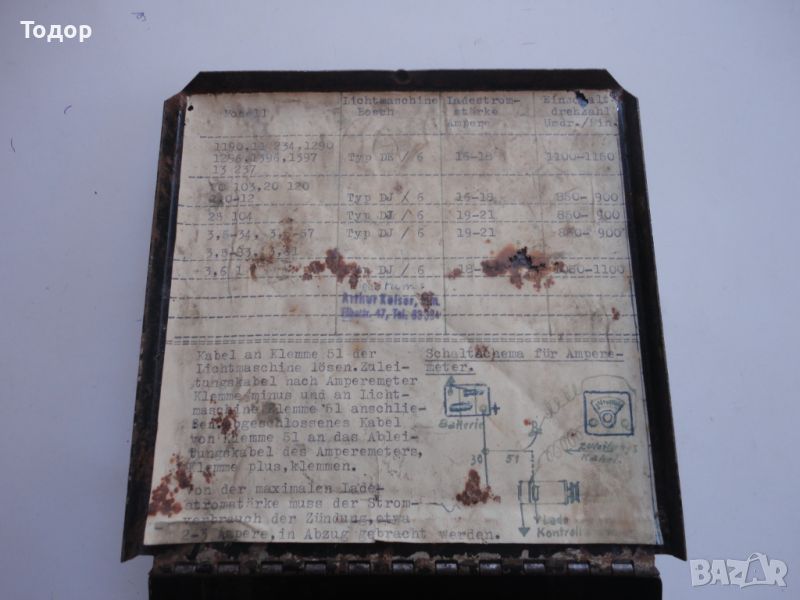 Todor
Modell Lichtmaschine Ladestrom- Einschalt-
Bosch stärke drehzahl
Ampere Umdr./Min.
1190,11 234,1290
1296,1396,1397 Typ DE / 6 16-18 1100-1150
13 237
103,20 120
-12 Typ DJ / 6 16-18 850- 900
28 104 Typ DJ / 6 19-21 850- 900
3,5-34, Typ DJ / 6 19-21 850- 900
3,6 DJ / 6 18- 1100
Arthur Keiser,
47, Tel.
Kabel an Klemme 51 der
Lichtmaschine lösen.Zulei-
tungskabel nach Amperemeter
Klemme minus und an Licht-
maschine Klemme 51 anschlie-
ßen abgeschlossenes Kabel
von Klemme 51 an das Ablei-
tungskabel des Amperemeters,
Klemme plus,klemmen.
Von der maximalen Lade-
stromstärke muss der Strom-
verbrauch der Zündung,etwa
2-3 Ampere,in Abzug gebracht werden.
Schaltschema für Ampere-
meter.
+
Batterie
30 51
Zuleitungs
Kabel.
Lade
Kontroll
BAZAR